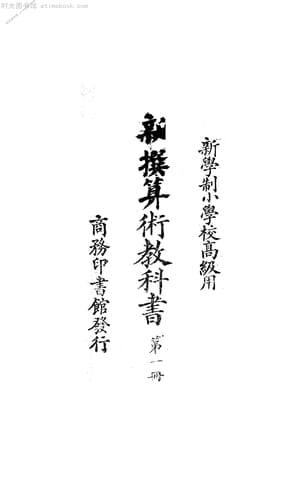 时光图书馆 atimebook.com
新學制小學校高級用
新撰算術教科書 第一冊
商務印書館發行